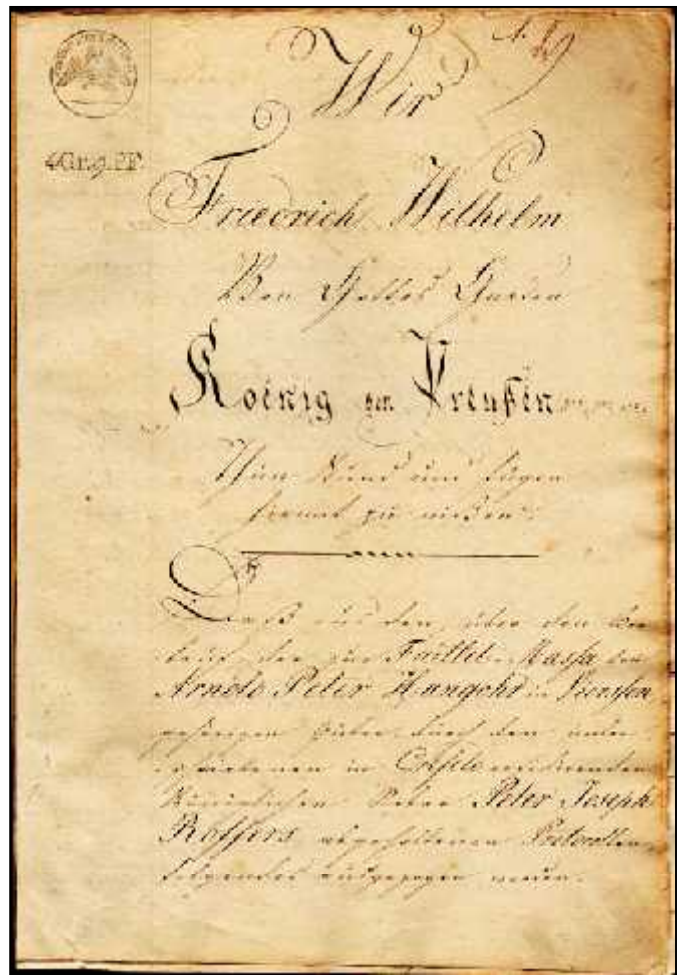 4 Gr. 9. PF.
Wir
Friedrich Wilhelm
Von Gottes Gnaden
Koenig von Preußen
Thun Kund und fügen
hiermit zu wissen:
Daß aus den, über den Ver
kauf der zur Fallit-Massa des
Arnold Peter Hungohr in Viersen
gehörigen Güter, durch den unter
in residirenden
Königlichen Notar Peter Joseph
abgehaltenen Protocollen
folgendes ausgezogen worden.